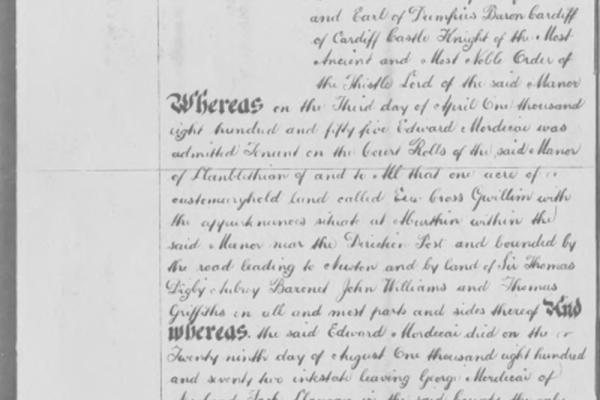 and Earl of Dumfries Baron Cardiff
of Cardiff Castle Knight of the Most
Ancient and Most Noble Order of
the Thistle Lord of the said Manor
Whereas on the Third day of April One thousand
eight hundred and fifty five Edward Mordecai was
admitted Tenent on the Court Rolls of the said Manor
of Llanblethian of and to All that one acre of
customaryhold land called Erw Cross Gwillim with
the appurtenances situate at Maerthin within the
said Manor near the Direction Post and bounded by
the road leading to Newton and by land of Sir Thomas
Digby Aubrey Baronet John Williams and Thomas
Griffiths on all and most parts and sides thereof And
whereas the said Edward Mordecai died on the
Twenty ninth day of August One thousand eight hundred
and seventy two intestate leaving George Mordecai of
in the said County the only